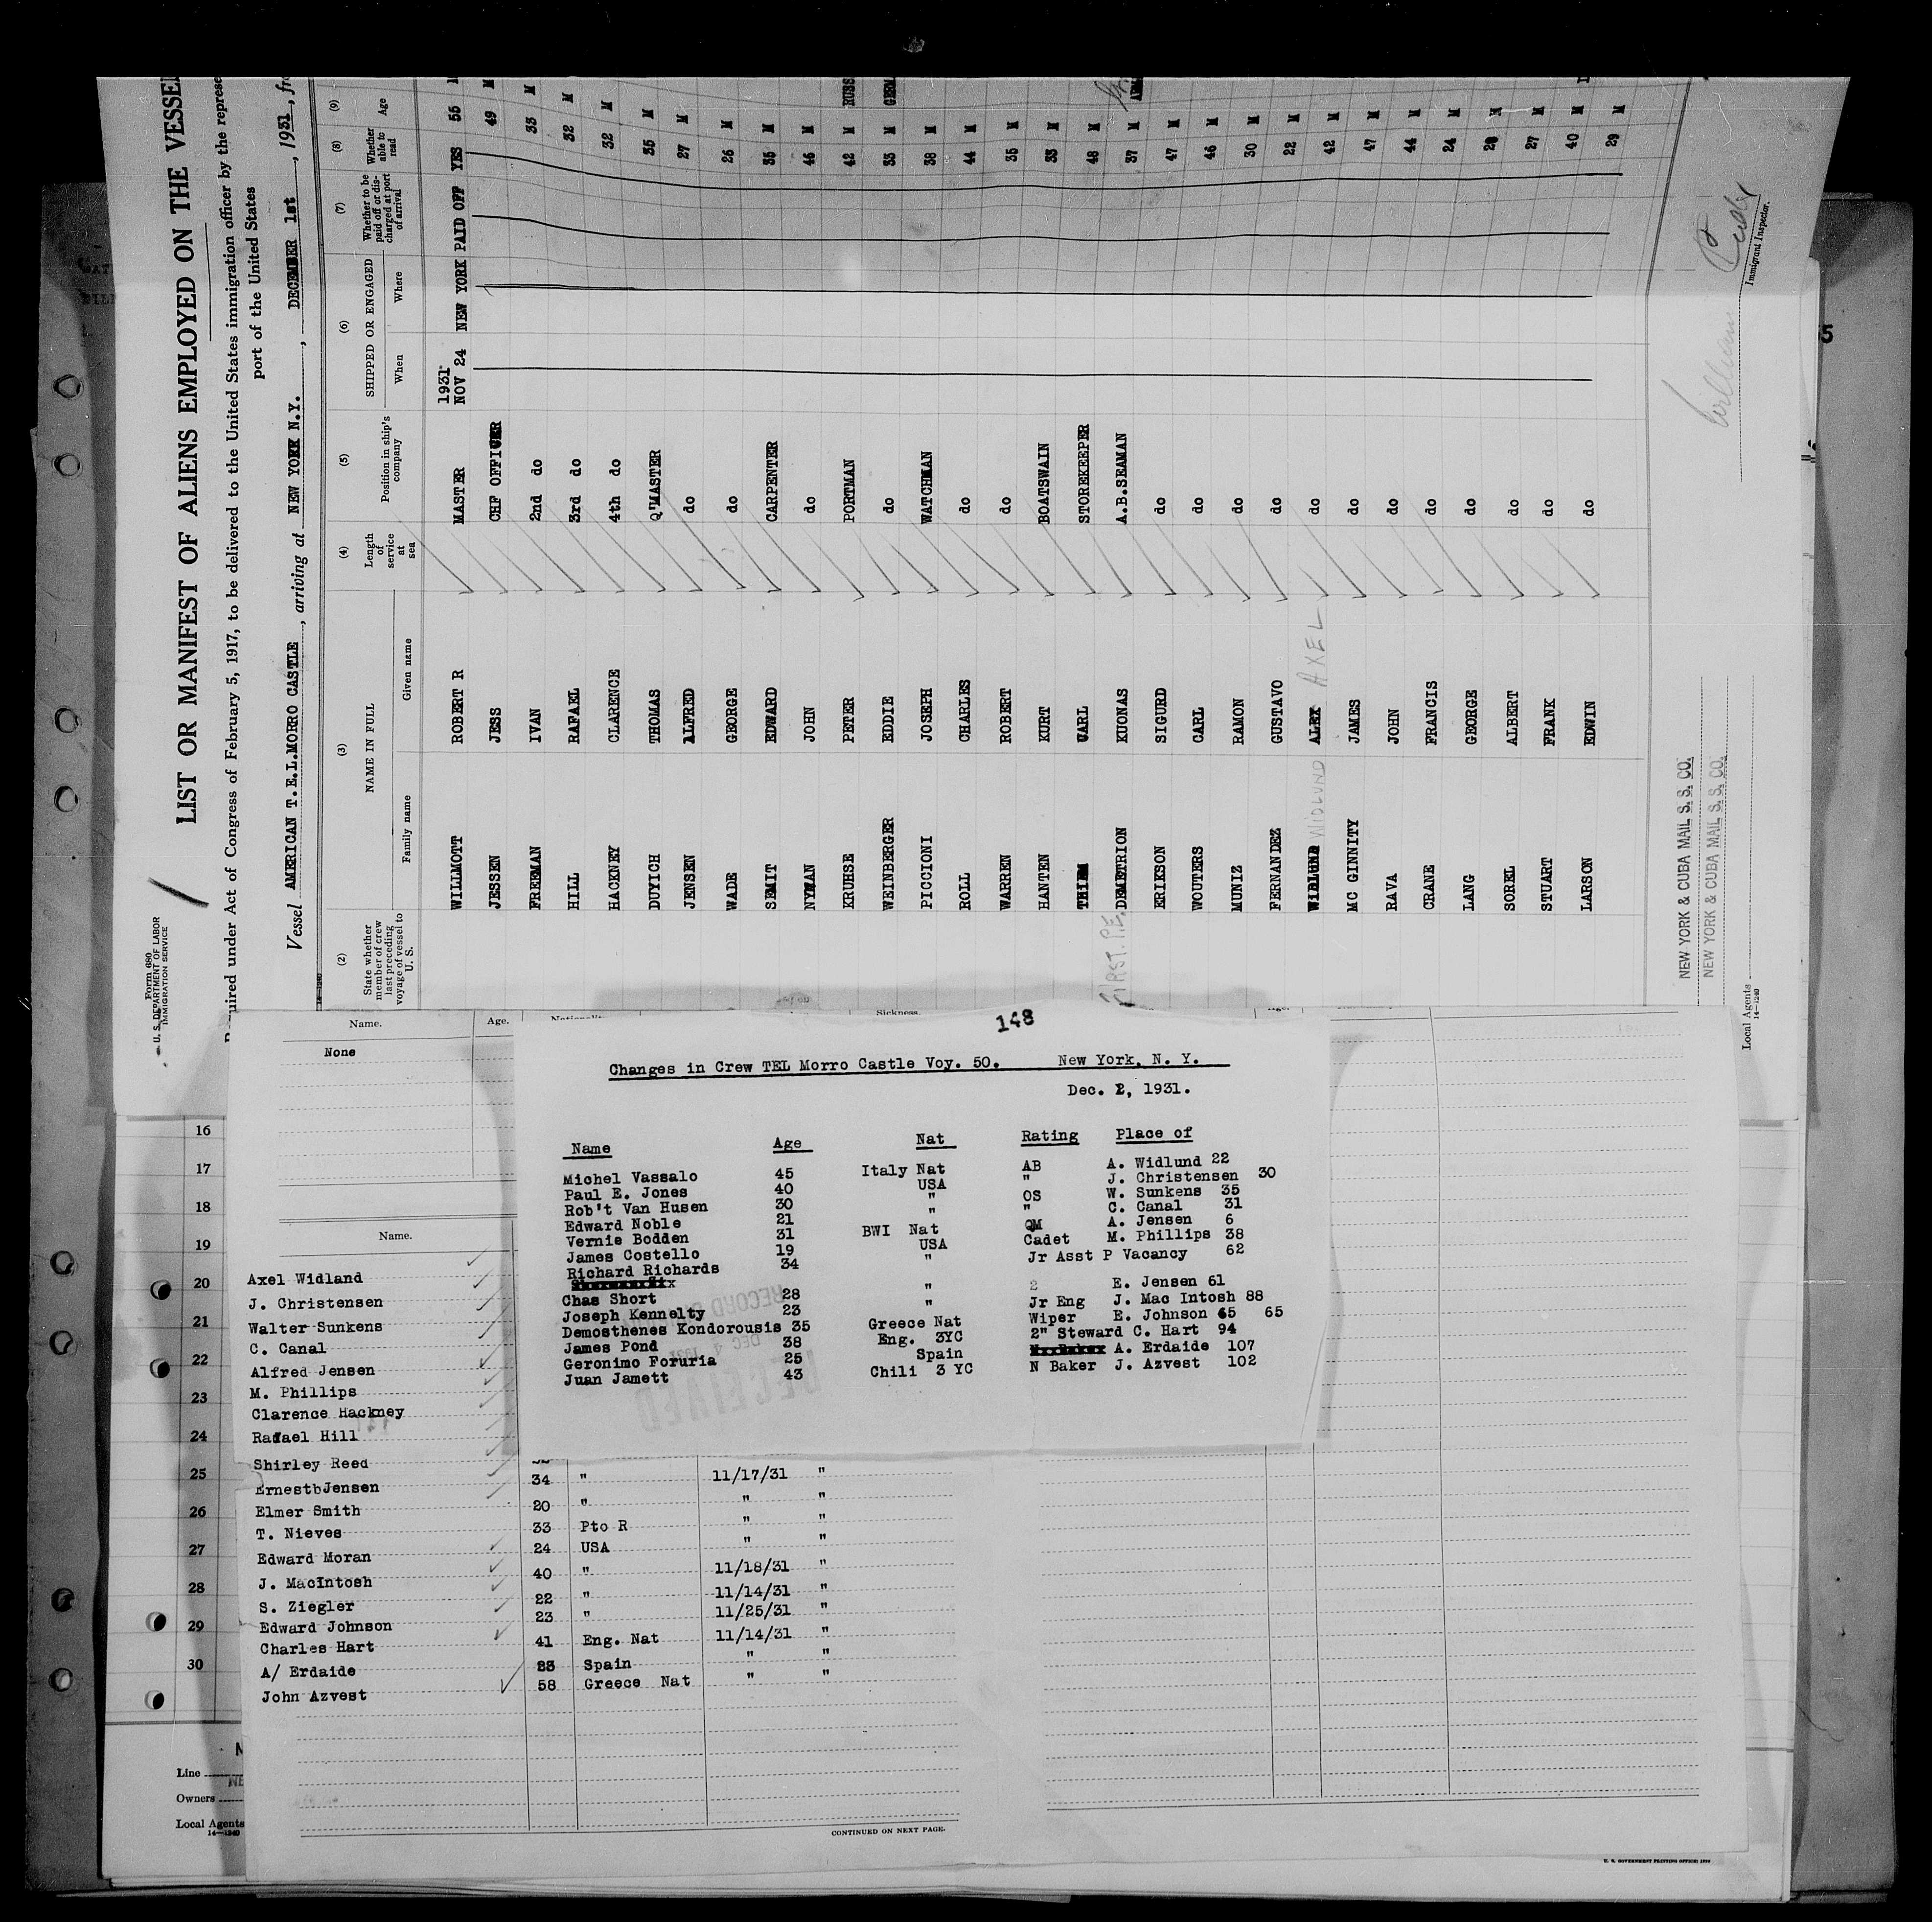 Form 680
U. S. DEPARTMENT OF LABOR
IMMIGRATION SERVICE
LIST OR MANIFEST OF ALIENS EMPLOYED ON THE VESSEL
Required under Act of Congress of February 5, 1917, to be delivered to the United States immigration officer by the represe
port of the United States
Vessel AMERICAN T.E.L.MORRO CASTLE, arriving at NEW YORK N.Y., DECEMBER 1st, 1931, fr
(2) (3) (4) (5) (6) (7) (8) (9)
State whether member of crew last preceding voyage of vessel to U. S.
NAME IN FULL
Family name Given name
Length of service at sea
Position in ship's company
SHIPPED OR ENGAGED
When Where
Whether to be paid off or discharged at port of arrival
Whether able to read
Age
WILLMOTT ROBERT R MASTER 1931 NOV 24 NEW YORK PAID OFF YES 55 M
JESSEN JESS CHF OFFICER 49 M
FREEMAN IVAN 2nd do 33 M
HILL RAFAEL 3rd do 32 M
HACKNEY CLARENCE 4th do 32 M
DUYICH THOMAS Q'MASTER 35 M
JENSEN ALFRED do 27 M
WADE GEORGE do 26 M
SEMIT EDWARD CARPENTER 35 M
NYMAN JOHN do 46 M
KRUHSE PETER PORTMAN 42 M RUSS
WEINBERGER EDDIE do 33 M GERM
PICCIONI JOSEPH WATCHMAN 38 M
ROLL CHARLES do 44 M
WARREN ROBERT do 35 M
HANTEN KURT BOATSWAIN 33 M
THIEM CARL STOREKEEPER 48 M
FIRST. P.E. DEMETRION KUONAS A.B.SEAMAN 37 M
ERIKSON SIGURD do 47 M
WOUTERS CARL do 46 M
MUNIZ RAMON do 30 M
FERNANDEZ GUSTAVO do 22 M
WIDLUND WIDLUND ALEX AXEL do 42 M
MC GINNITY JAMES do 47 M
RAVA JOHN do 44 M
CRANE FRANCIS do 24 M
LANG GEORGE do 28 M
SOREL ALBERT do 27 M
STUART FRANK do 40 M
LARSON EDWIN do 29 M
NEW YORK & CUBA MAIL S. S. CO.
NEW YORK & CUBA MAIL S. S. CO.
Local Agents
14—1240
William
Immigrant Inspector.
Name. Age.
Sickness.
None
148
Changes in Crew TEL Morro Castle Voy. 50. New York, N. Y.
Dec. 2, 1931.
Name Age Nat Rating Place of
Michel Vassalo 45 Italy Nat AB A. Widlund 22
Paul E. Jones 40 USA " J. Christensen 30
Rob't Van Husen 30 " OS W. Sunkens 35
Edward Noble 21 " " C. Canal 31
Vernie Bodden 31 BWI Nat QM A. Jensen 6
James Costello 19 USA Cadet M. Phillips 38
Richard Richards 34 " Jr Asst P Vacancy 62
Chas Short 28 " 2 E. Jensen 61
Joseph Kennelty 23 " Jr Eng J. Mac Intosh 88
Demosthenes Kondorousis 35 Greece Nat Wiper E. Johnson 65 65
James Pond 38 Eng. 3YC 2" Steward C. Hart 94
Geronimo Foruria 25 Spain A. Erdaide 107
Juan Jamett 43 Chili 3 YC N Baker J. Azvest 102
RECORD
DEC 4 1931
RECEIVED
16
17
18
19
20
21
22
23
24
25
26
27
28
29
30
Name.
Axel Widland
J. Christensen
Walter Sunkens
C. Canal
Alfred Jensen
M. Phillips
Clarence Hackney
Rafael Hill
Shirley Reed
ErnestbJensen 34 " 11/17/31 "
Elmer Smith 20 " " "
T. Nieves 33 Pto R " "
Edward Moran 24 USA " "
J. MacIntosh 40 " 11/18/31 "
S. Ziegler 22 " 11/14/31 "
Edward Johnson 23 " 11/25/31 "
Charles Hart 41 Eng. Nat 11/14/31 "
A/ Erdaide Spain " "
John Azvest 58 Greece Nat " "
Line
Owners
Local Agents
14—1240
CONTINUED ON NEXT PAGE.
U. S. GOVERNMENT PRINTING OFFICE: 1930